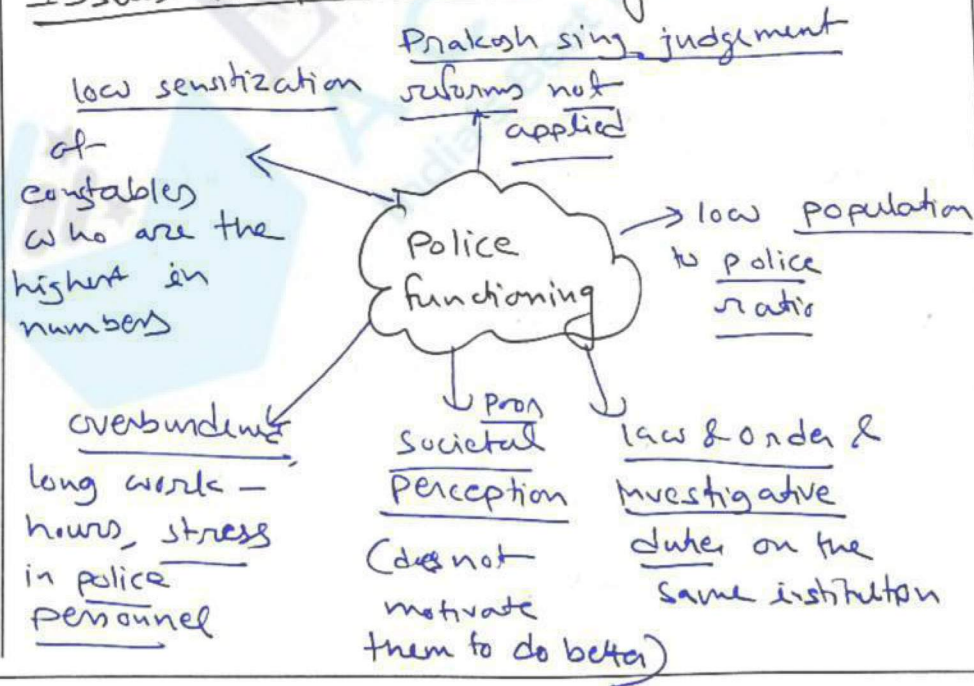 Prakash sing judgement
reforms not
applied
low sensitization
of
constables
who are the
highest in
numbers
Police
functioning
low population
to police
ratio
overburdened
long work-
hours, stress
in police
personnel
poor
societal
perception
(does not
motivate
them to do better)
law & order &
investigative
duties on the
same institution